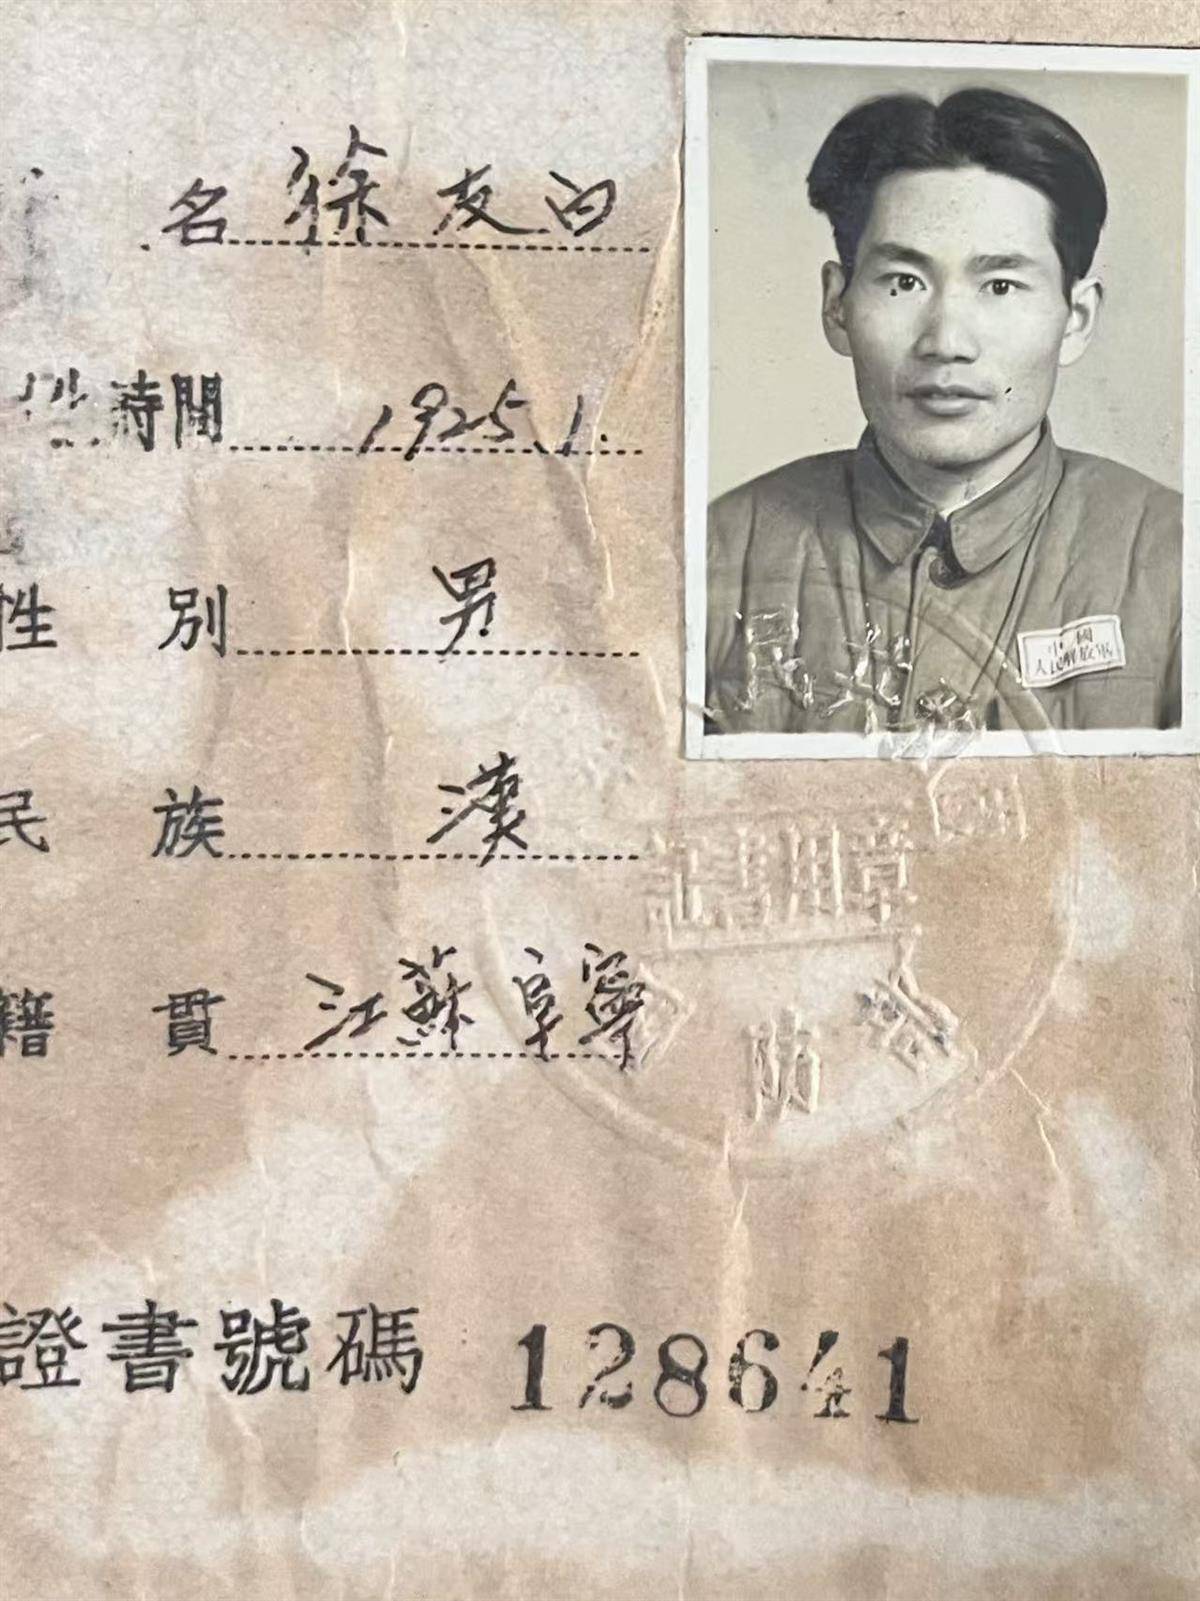 名 徐友白
時間 1925.1.
性別 男
民族 漢
籍貫 江蘇阜寧
證書號碼 128641
中國
人民解放軍
民共
證書用章
國防部